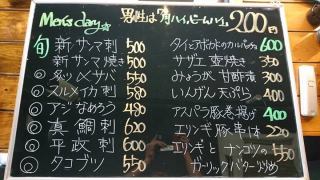 Men's day 男性は「角ハイ、ビール」1杯 200円
旬 新サンマ刺 500
新サンマ焼き 500
◎ 炙〆サバ 550
◎ スルメイカ刺 580
◎ アジなめろう 480
◎ 真鯛刺 620
◎ 平政刺 600
◎ タコブツ 550
タイとアボカドのカルパッチョ 600
サザエ壺焼き 350
みょうが甘酢漬 300
いんげん天ぷら 400
アスパラ豚巻揚げ 400
エリンギ豚串 220
エリンギとナンコツの 550
ガーリックバター炒め